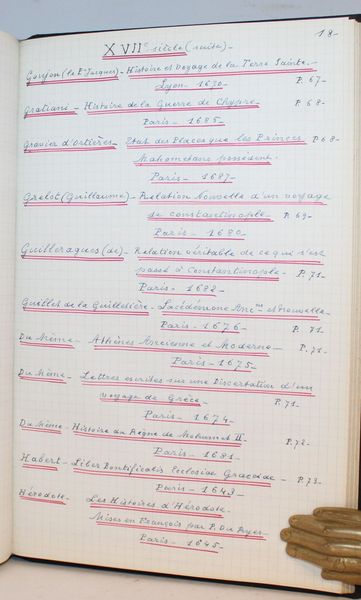 18-
XVIIe siècle (suite)-
Goujon (le P. Jacques) - Histoire et Voyage de la Terre Sainte.
Lyon - 1670 - P. 67-
Gratiani - Histoire de la Guerre de Chypre - P. 68-
Paris - 1685-
Gravier d'ortières - Etat des Places que les Princes P. 68-
Mahometans possèdent -
Paris - 1687-
Grelot (Guillaume) - Relation Nouvelle d'un voyage
de constantinople - P. 69-
Paris - 1680-
Guilleragues (de) - Relation véritable de ce qui s'est
passé à Constantinople - P. 71-
Paris - 1682-
Guillet de la Guilletière - Lacédémone Ancne et Nouvelle
Paris - 1676 - P. 71-
Du Même - Athènes Ancienne et Moderne - P. 71-
Paris - 1675-
Du Même - Lettres escrites sur une Dissertation d'un
voyage de Grèce - P. 71-
Paris - 1674-
Du Même - Histoire du Règne de Mahomet II - P. 72-
Paris - 1681-
Habert - Liber Pontificalis Ecclesiae Graecae - P. 73-
Paris - 1643-
Hérodote - Les Histoires d'Hérodote -
Mises en François par P. Du Ryer -
Paris - 1645-